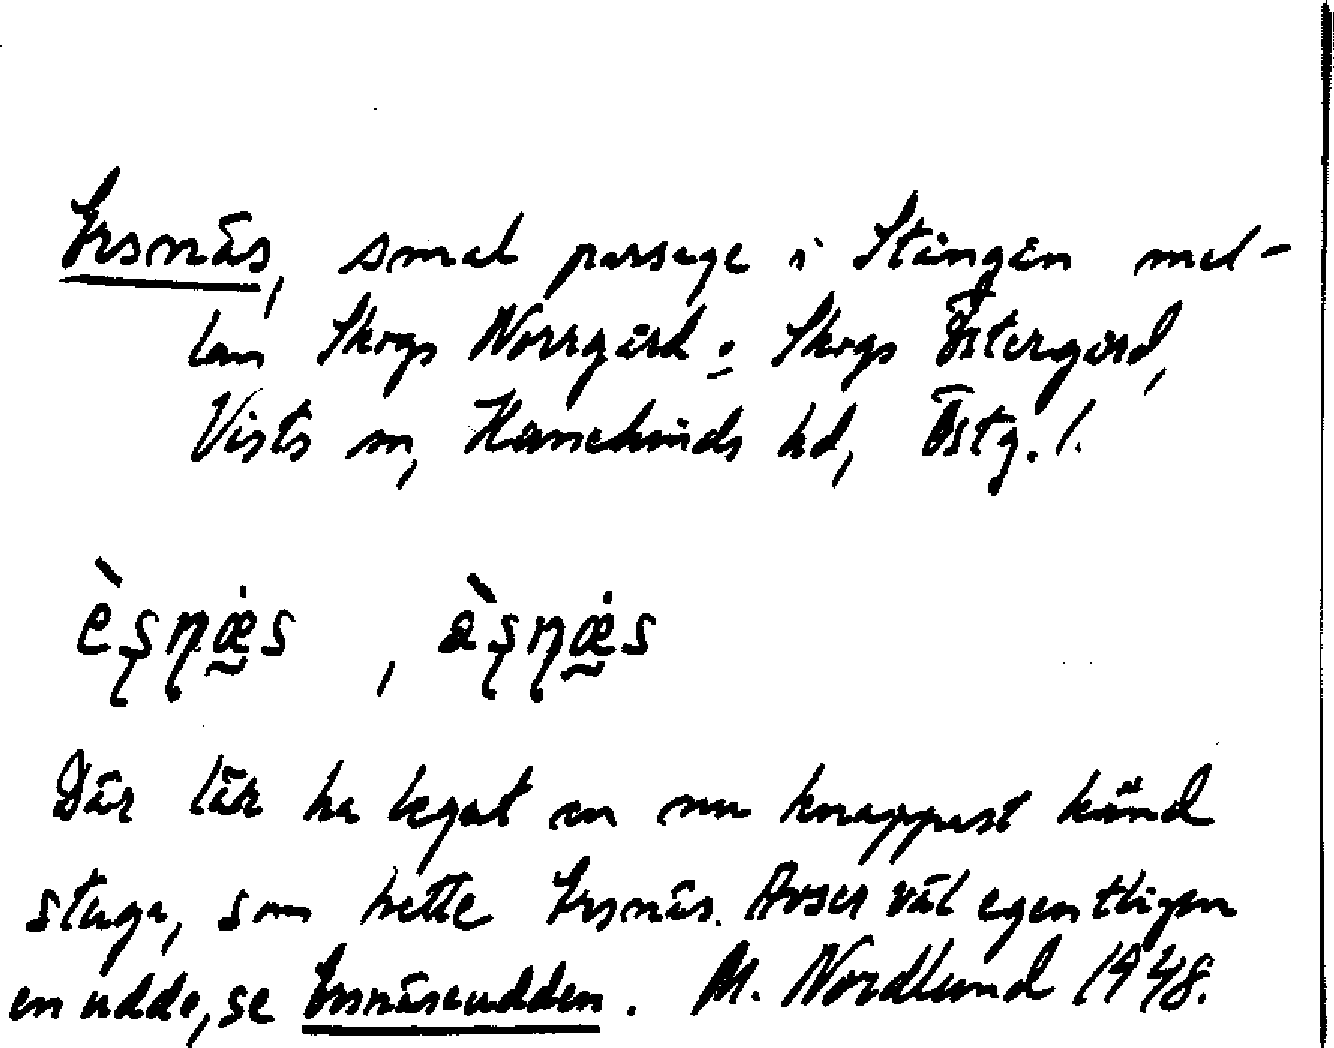 Ersnäs, smal passage i Stångån mel-
lan Skogs Norrgård o. Skogs Östergård,
Vists sn, Hanekinds hd, Östg. l.
èṣṇæs, àṣṇæs
Där lär ha legat en nu knappast känd
stuga, som hette Ersnäs. Avser väl egentligen
en udde, se Ersnäseudden. M. Nordlund 1948.